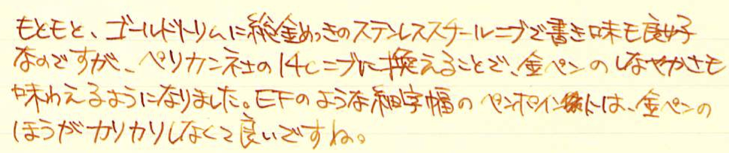 もともと、ゴールドトリムに総金めっきのステンレススチールニブで書き味も良好
なのですが、ペリカン社の14Cニブに換えることで、金ペンのしなやかさも
味わえるようになりました。EFのような細字幅のペンポイントは、金ペンの
ほうがカリカリしなくて良いですね。